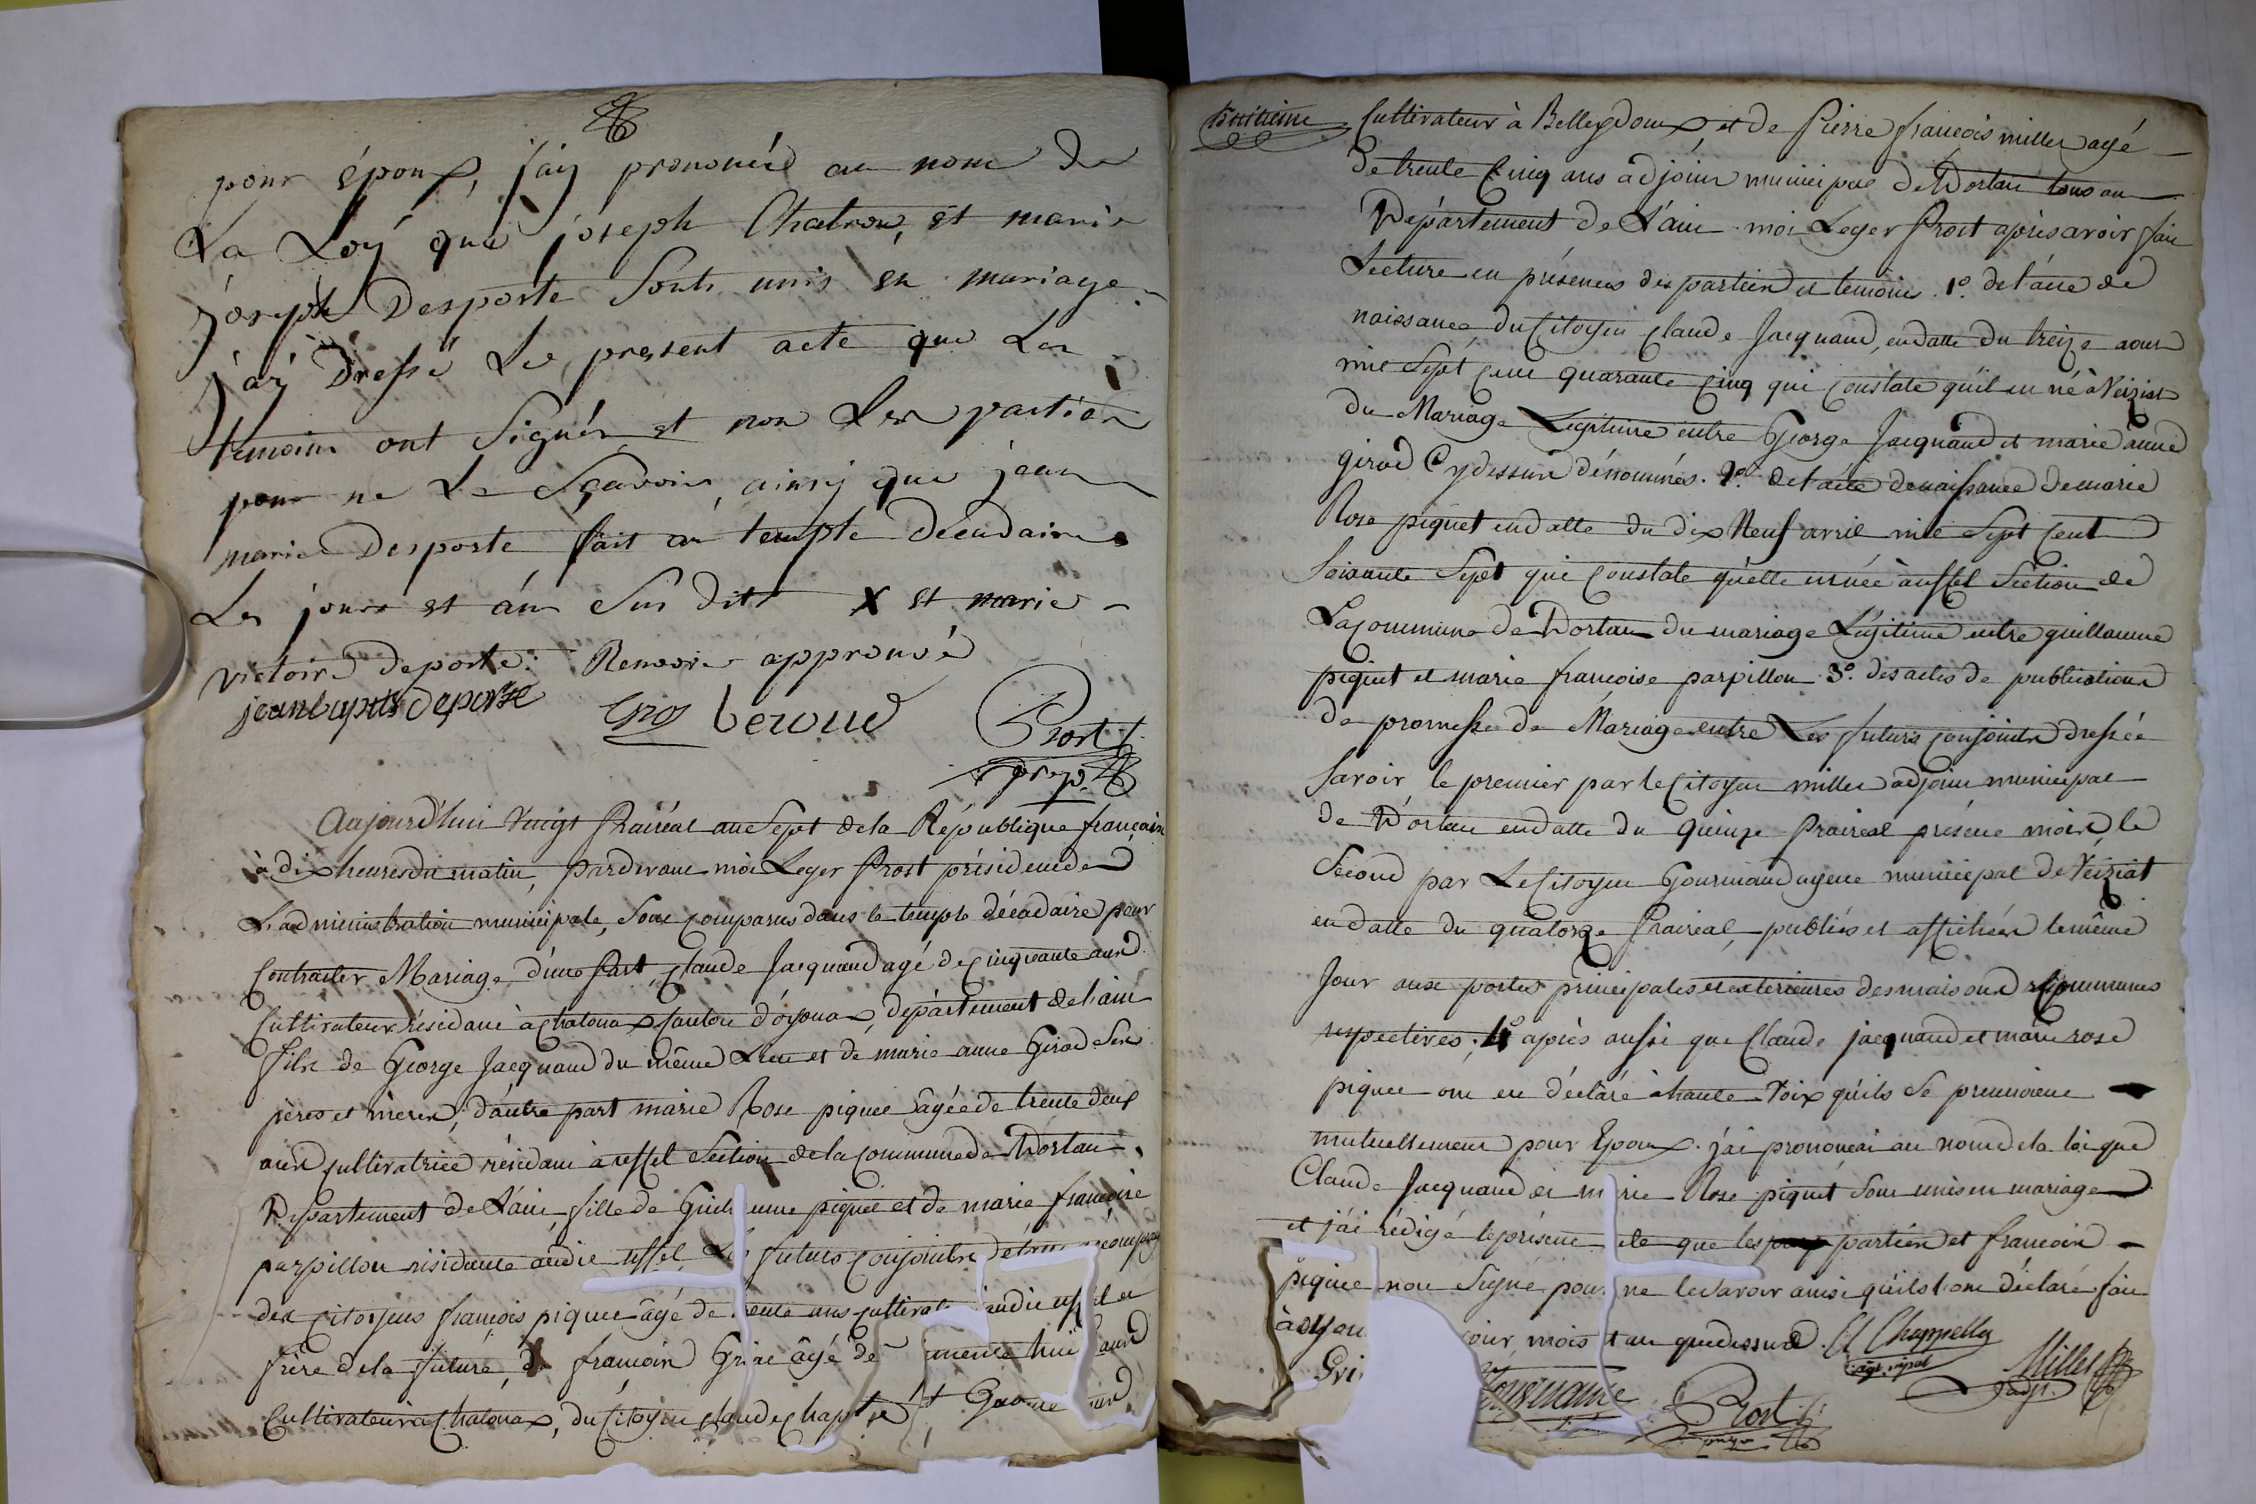 pour époux, j'ay prononcé au nom de
La Loy que joseph Chatron, et marie
joseph Desporte Sont unis en mariage.
j'ay Dressé Le present acte que Les
temoins ont Signés et non Les parties
pour ne Le Sçavoir, ainsy que jean
marie Desporte fait au temple decadaire
Les jours et an Sus dits X et marie
victoire deporte: Renvoi approuvé
jean baptis deporte Gros beroud Prost
presp.
Aujourd'hui vingt Prairéal an Sept de la République française
à dix heures du matin, pardevant moi Leger Prost président de
L'administration municipale, Sont comparus dans le temple décadaire pour
Contracter Mariage, d'une Part, Claude Jacquand agé de cinquante ans
Cultivateur résidant à chatonax Canton d'oyonax, département de l'ain
fils de George Jacquand du même Lieu et de marie anne Girod Ses
pères et mères; d'autre part marie Rose piquet âgée de trente deux
ans cultivatrice résidant à uffel Section de la commune de Dortan
Département de L'ain, fille de Guil ume piquet et de marie françoise
parpillon résidante audit uffel Les futurs conjoints
des Citoyens françois piquet âgé de trente ans cultivat audit uffel et
frère de la future, d françois Gri âgé de uante huit ans
Cultivateur à Chatonax, du Citoyen claude chap
huitieme
Cultivateur à Belleydoux, et de Pierre françois millet agé
de trente Cinq ans adjoint municipal de Dortan tous au
Département de L'ain. moi Leger Prost après avoir fait
Lecture en présence des parties et temoins. 1º. de l'acte de
naissance du Citoyen Claude Jacquand, en datte du treize aout
mil Sept Cent quarante Cinq qui Constate qu'il est né à Veiziat
du Mariage Legitime entre George Jacquand et marie anne
girod Cydessus dénommés. 2º. de l'acte de naissance de marie
Rose piquet en datte du dix Neuf avril mil Sept Cent
Soixante Sept qui Constate qu'elle est née à uffel Section de
La Commune de Dortan du mariage Légitime entre guillaume
piquet et marie françoise parpillon. 3º. des actes de publication
de promesse de Mariage entre Les futurs conjoints dressée
Savoir, le premier par le Citoyen millet adjoint municipal
de Dortan en datte du quinze Prairéal présent mois, le
Second par Le Citoyen Gourmand agent municipal de Veiziat
en datte du quatorze Prairéal, publiés et affichés le même
Jour aux portes principales et exterieures des maisons Communes
respectives; 4º après aussi que Claude jacquand et marie rose
piquet ont eu déclaré à haute Voix qu'ils Se prennoient
mutuellement pour Epoux. j'ai prononcai au nom de la loi que
Claude Jacquand et m rie Rose piquet Sont unis en mariage
et j'ai rédigé le présent cte que les parties et francois
piquet non Signé pour ne le Savoir ainsi qu'ils l'ont déclaré fait
à oyon jour mois t an que dessus. Cl Chappellu
Gri Gourmand Prost Millet
agt. mpal adjt.